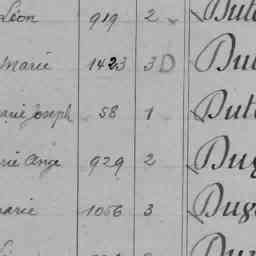 Léon 919 2 Dut
Marie 1423 3 D Du
arie Joseph 58 1 Dut
rie Ange 929 2 Dug
arie 1056 3 Dug